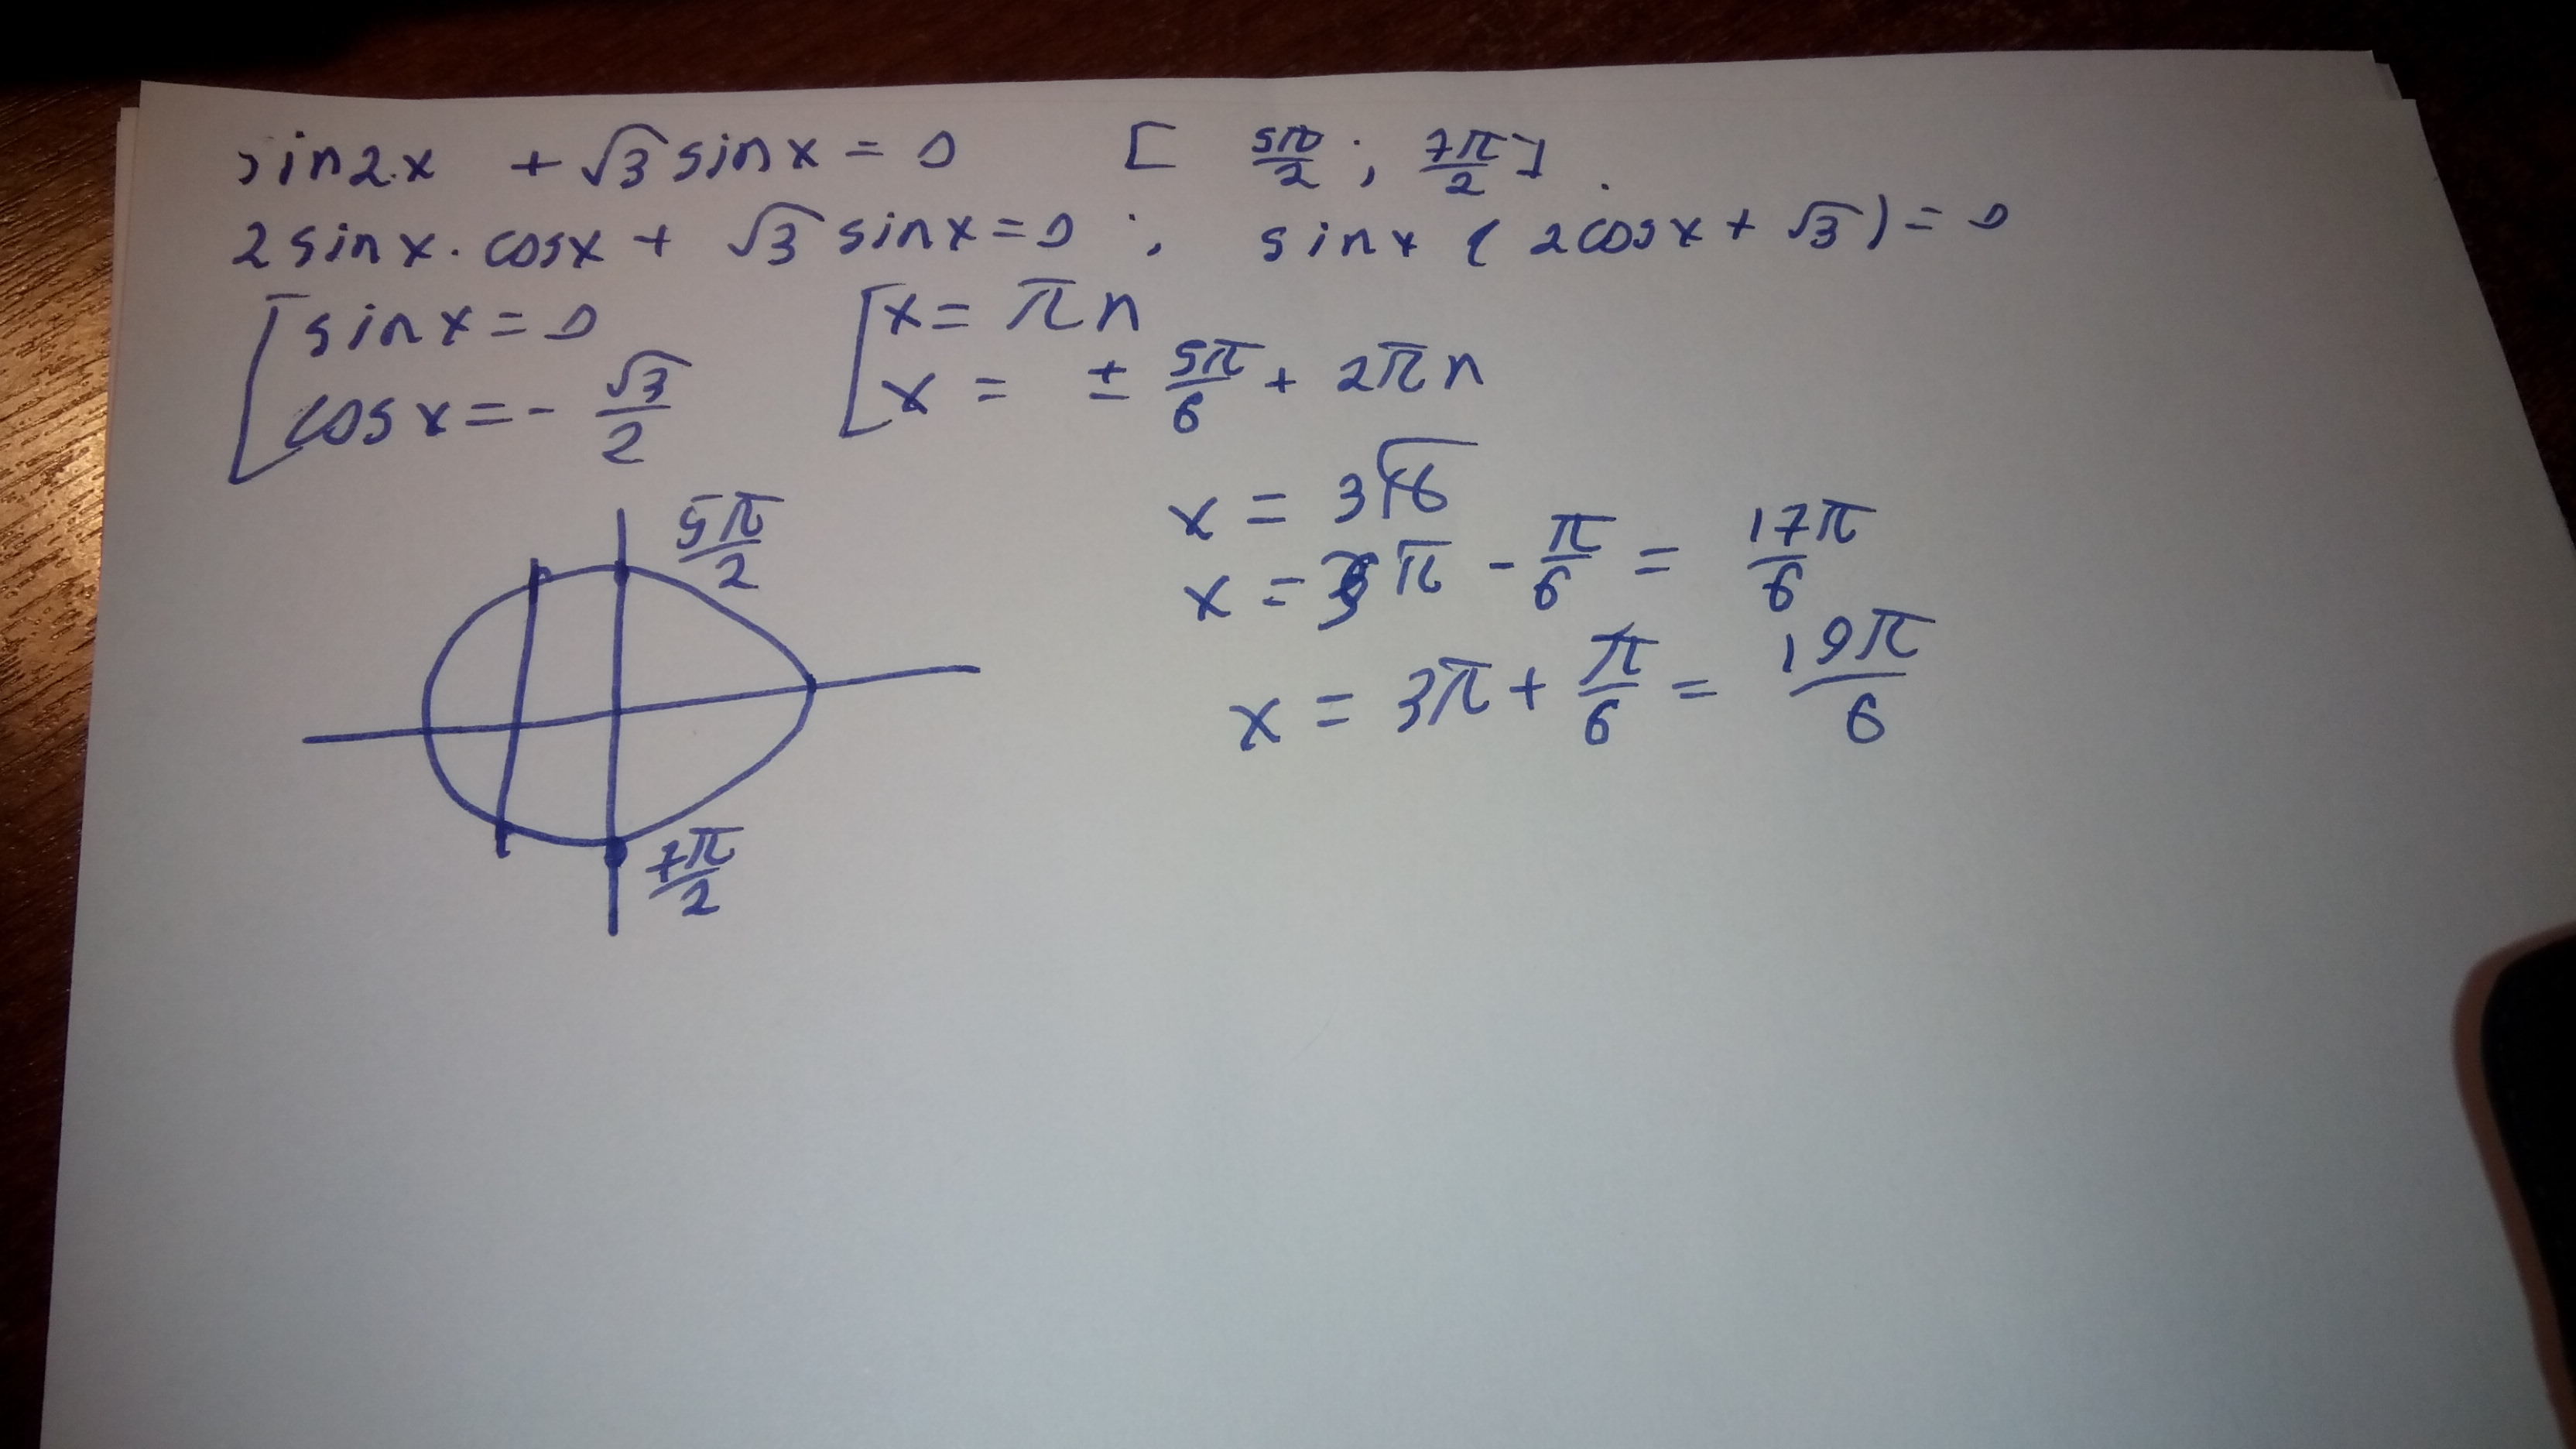 sin2x + √3 sinx = 0 [ 5π/2 ; 7π/2 ].
2 sinx · cosx + √3 sinx = 0 ; sinx ( 2cosx + √3 ) = 0
[ sinx = 0 [ x = πn
cosx = - √3/2 x = ± 5π/6 + 2πn
x = 3π
5π/2 x = 3π - π/6 = 17π/6
x = 3π + π/6 = 19π/6
7π/2